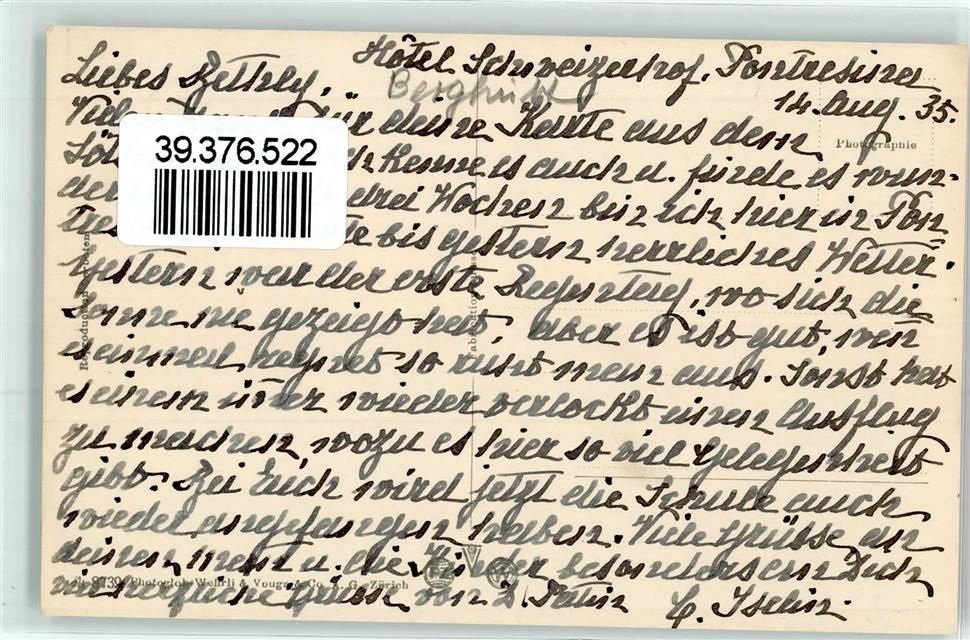 Hôtel Schweizerhof. Pontresina
Berghütte
14. Aug. 35.
Liebes Bethly,
für deine Karte aus dem
Photographie
39.376.522
ich kenne es auch u. finde es wun-
der drei Wochen bin ich hier in Pon
tres bis gestern herrliches Wetter.
Gestern war der erste Regentag, wo sich die
Sonne nie gezeigt hat, aber es ist gut, wen
es einmal regnet so ruht man aus. Sonst hat
es einem imer wieder verlockt einen Ausflug
zu machen, wozu es hier so viel Gelegenheit
gibt. Bei Euch wird jetzt die Schule auch
wieder angefangen haben. Viele Grüsse an
deinen Mann u. die Kinder besonders an Dich
8739 Photoglob-Wehrli & Vouga & Co. A. G., Zürich
viel herzliche Grüsse von D. Patin
C. Iselin.
Reproduction verboten